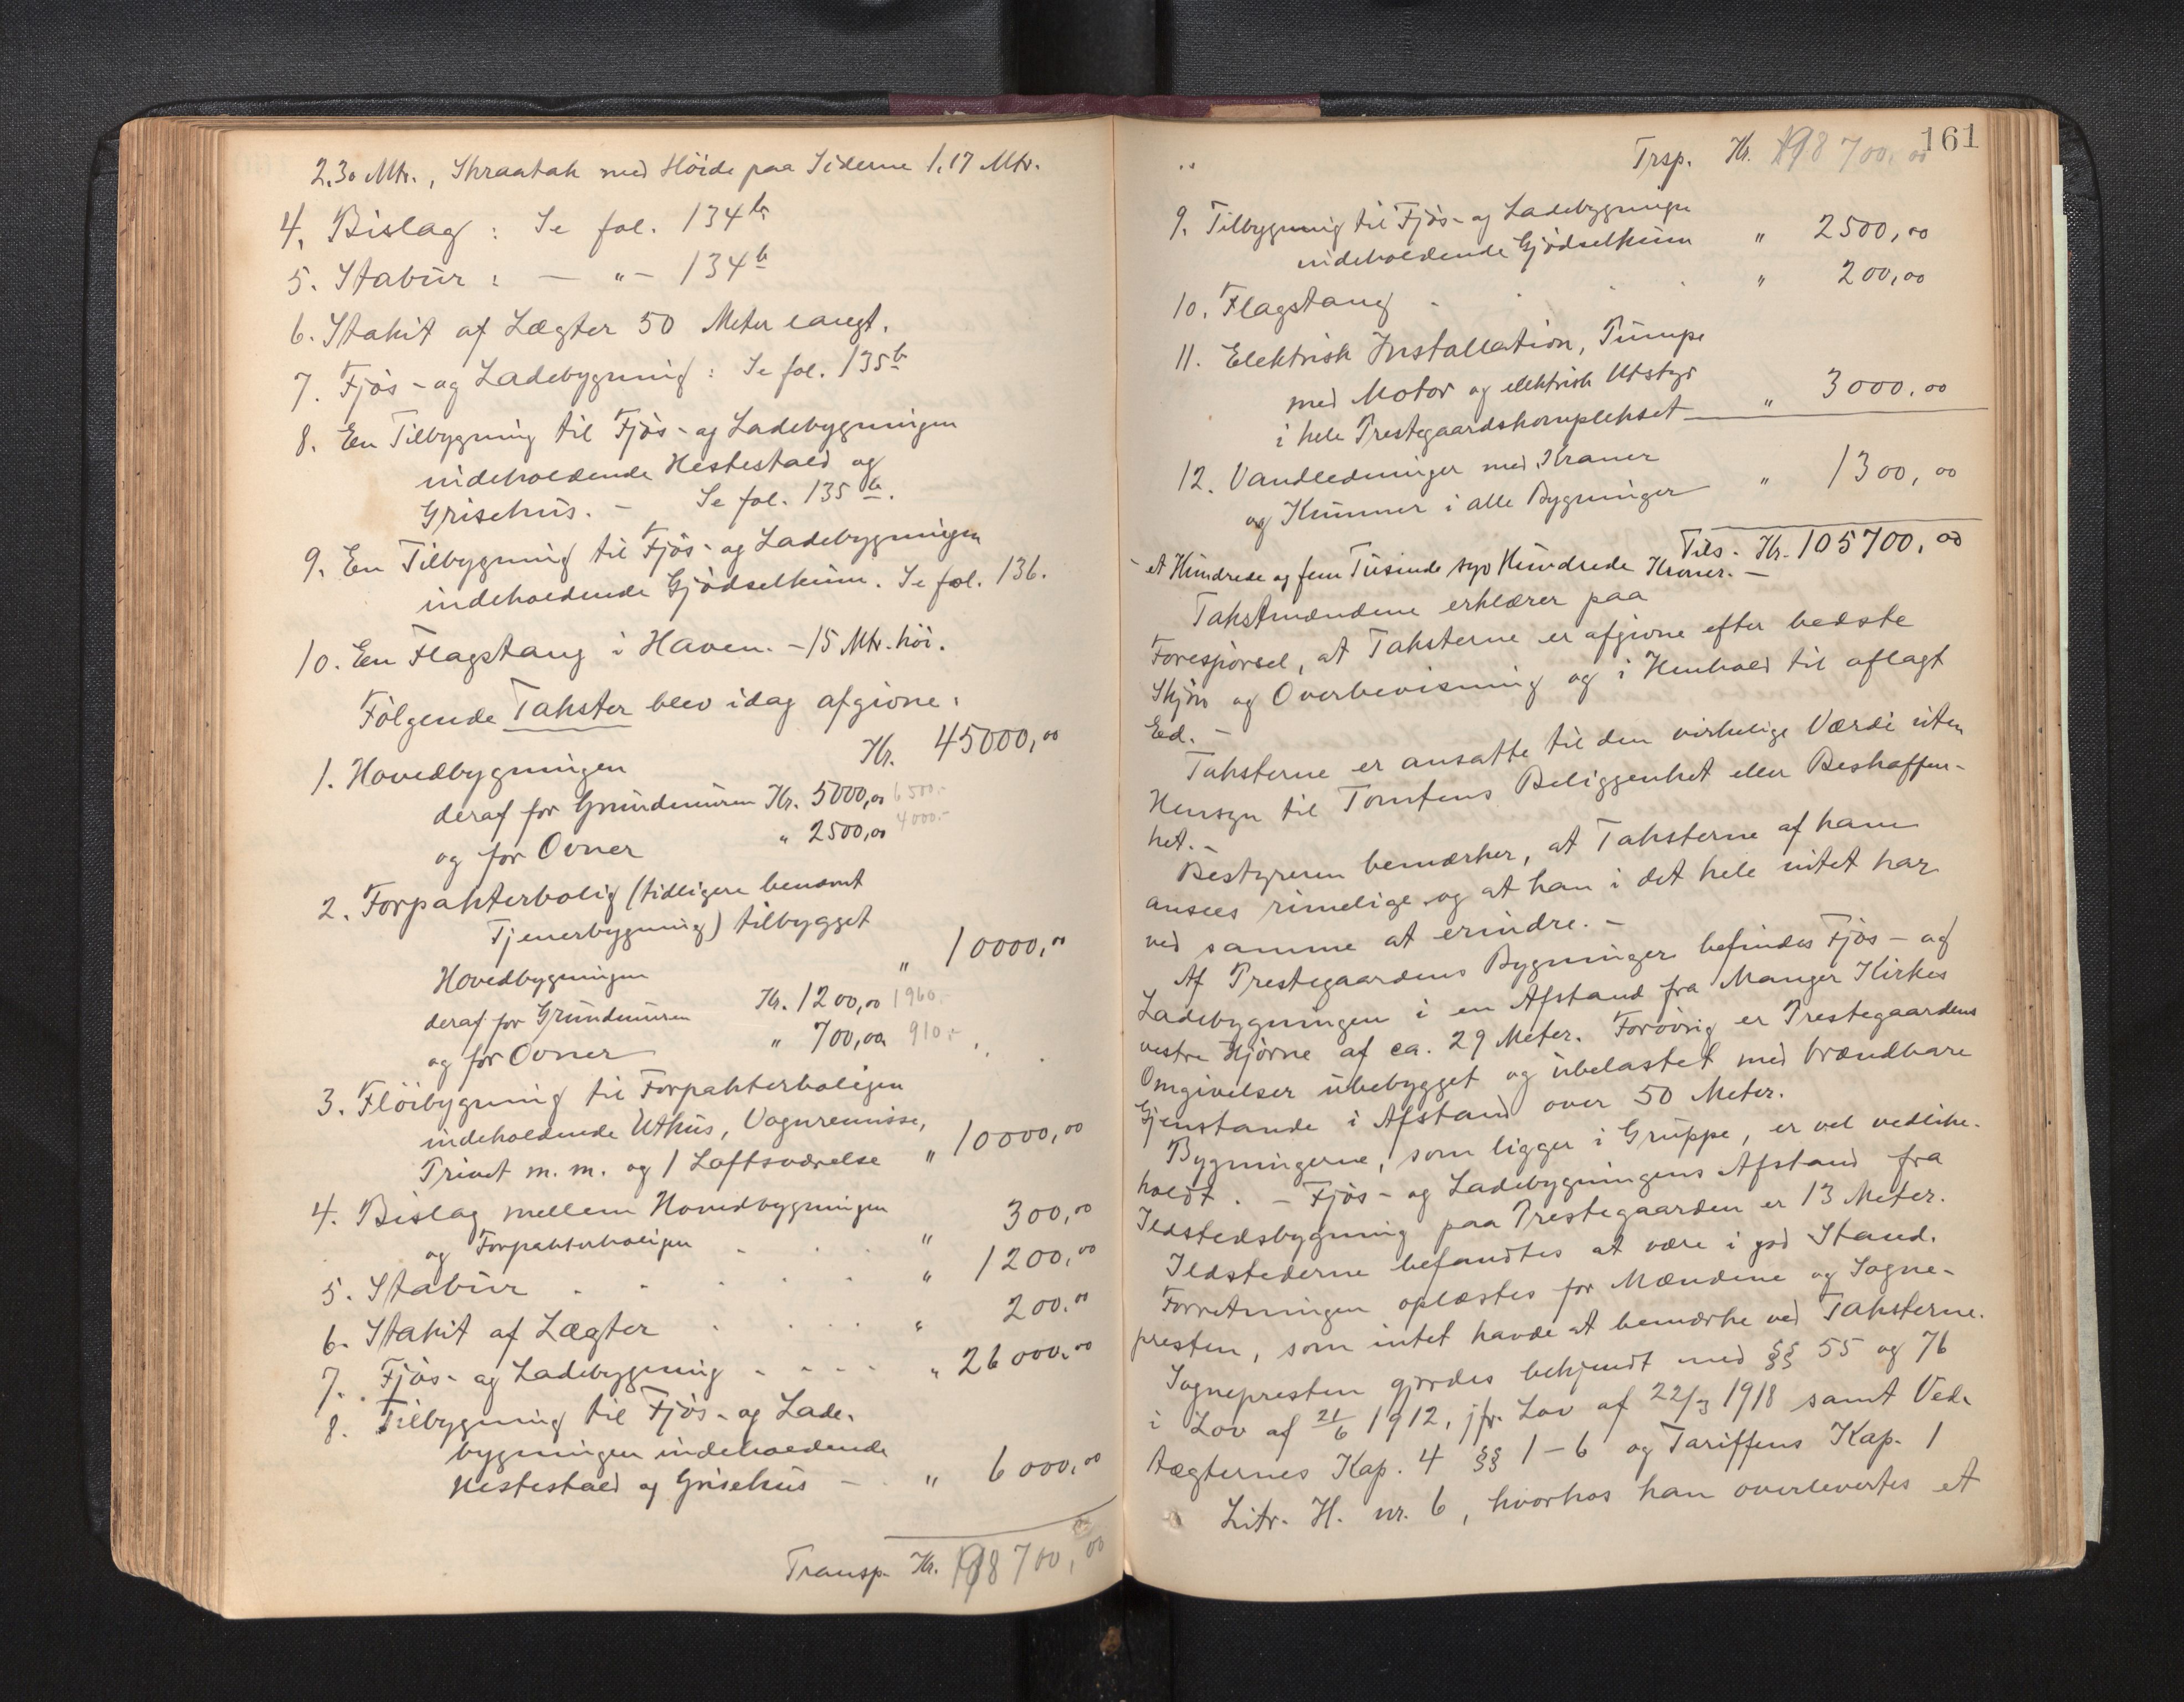 2,30 Mtr., Skraatak med Höide paa Siderne 1,17 Mtr.
4. Bislag : Se fol. 134 b
5. Stabur : — „ — 134 b
6. Stakit af Lægter 50 Meter langt.
7. Fjös- og Ladebygning : Se fol. 135 b
8. En Tilbygning til Fjös- og Ladebygningen
indeholdende Hestestald og
Grisehus. — Se fol. 135 b.
9. En Tilbygning til Fjös- og Ladebygningen
indeholdende Gjödselkum. Se fol. 136.
10. En Flagstang i Haven. - 15 Mtr. höi.
Fölgende Takster blev idag afgivne :
1. Hovedbygningen Kr. 45000,00
deraf for Grundmuren Kr. 5000,00 6500.-
og for Ovner „ 2500,00 4000.-
2. Forpakterbolig (tidligere benævnt
Tjenerbygning) tilbygget
Hovedbygningen „ 10000,00
deraf for Grundmuren Kr. 1200,00 1960.-
og for Ovner „ 700,00 910.-
3. Flöibygning til Forpakterboligen
indeholdende Uthus, Vognremisse,
Privet m. m. og 1 Loftsværelse „ 10000,00
4. Bislag mellem Hovedbygningen
og Forpakterboligen „ 300,00
5. Stabur „ 1200,00
6. Stakit af Lægter „ 200,00
7. Fjös- og Ladebygning „ 26000,00
8. Tilbygning til Fjös- og Lade-
bygningen indeholdende
Hestestald og Grisehus — „ 6000,00
Transp. Kr. 98700,00
161
Trsp. Kr. 98700,00
9. Tilbygning til Fjös- og Ladebygningen
indeholdende Gjödselkum „ 2500,00
10. Flagstang „ 200,00
11. Elektrisk Installation, Pumpe
med Motor og elektrisk Utstyr
i hele Prestegaardskomplekset „ 3000,00
12. Vandledninger med Kraner
og Kummer i alle Bygninger „ 1300,00
Tils. Kr. 105700,00
- et Hundrede og fem Tusinde syv Hundrede Kroner. -
Takstmændene erklærer paa
Forespörsel, at Taksterne er afgivne efter bedste
Skjön og Overbevisning og i Henhold til aflagt
Ed. -
Taksterne er ansatte til den virkelige Værdi uten
Hensyn til Tomtens Beliggenhet eller Beskaffen-
het. -
Bestyreren bemærker, at Taksterne af ham
ansees rimelige og at han i det hele intet har
ved samme at erindre. -
Af Prestegaardens Bygninger befindes Fjös - og
Ladebygningen i en Afstand fra Manger Kirkes
vestre Hjörne af ca. 29 Meter. Forövrig er Prestegaardens
Omgivelser ubebygget og ubelastet med brændbare
Gjenstande i Afstand over 50 Meter.
Bygningerne, som ligger i Gruppe, er vel vedlike-
holdt. - Fjös- og Ladebygningens Afstand fra
Ildstedsbygning paa Prestegaarden er 13 Meter.
Ildstederne befandtes at være i god Stand.
Forretningen oplæstes for Mændene og Sogne-
presten, som intet havde at bemærke ved Taksterne.
Sognepresten gjordes bekjendt med §§ 55 og 76
i Lov af 21/6 1912, jfr. Lov af 22/3 1918 samt Ved-
tægternes Kap. 4 §§ 1-6 og Tariffens Kap. 1
Litr. H. nr. 6, hvorhos han overlevertes et